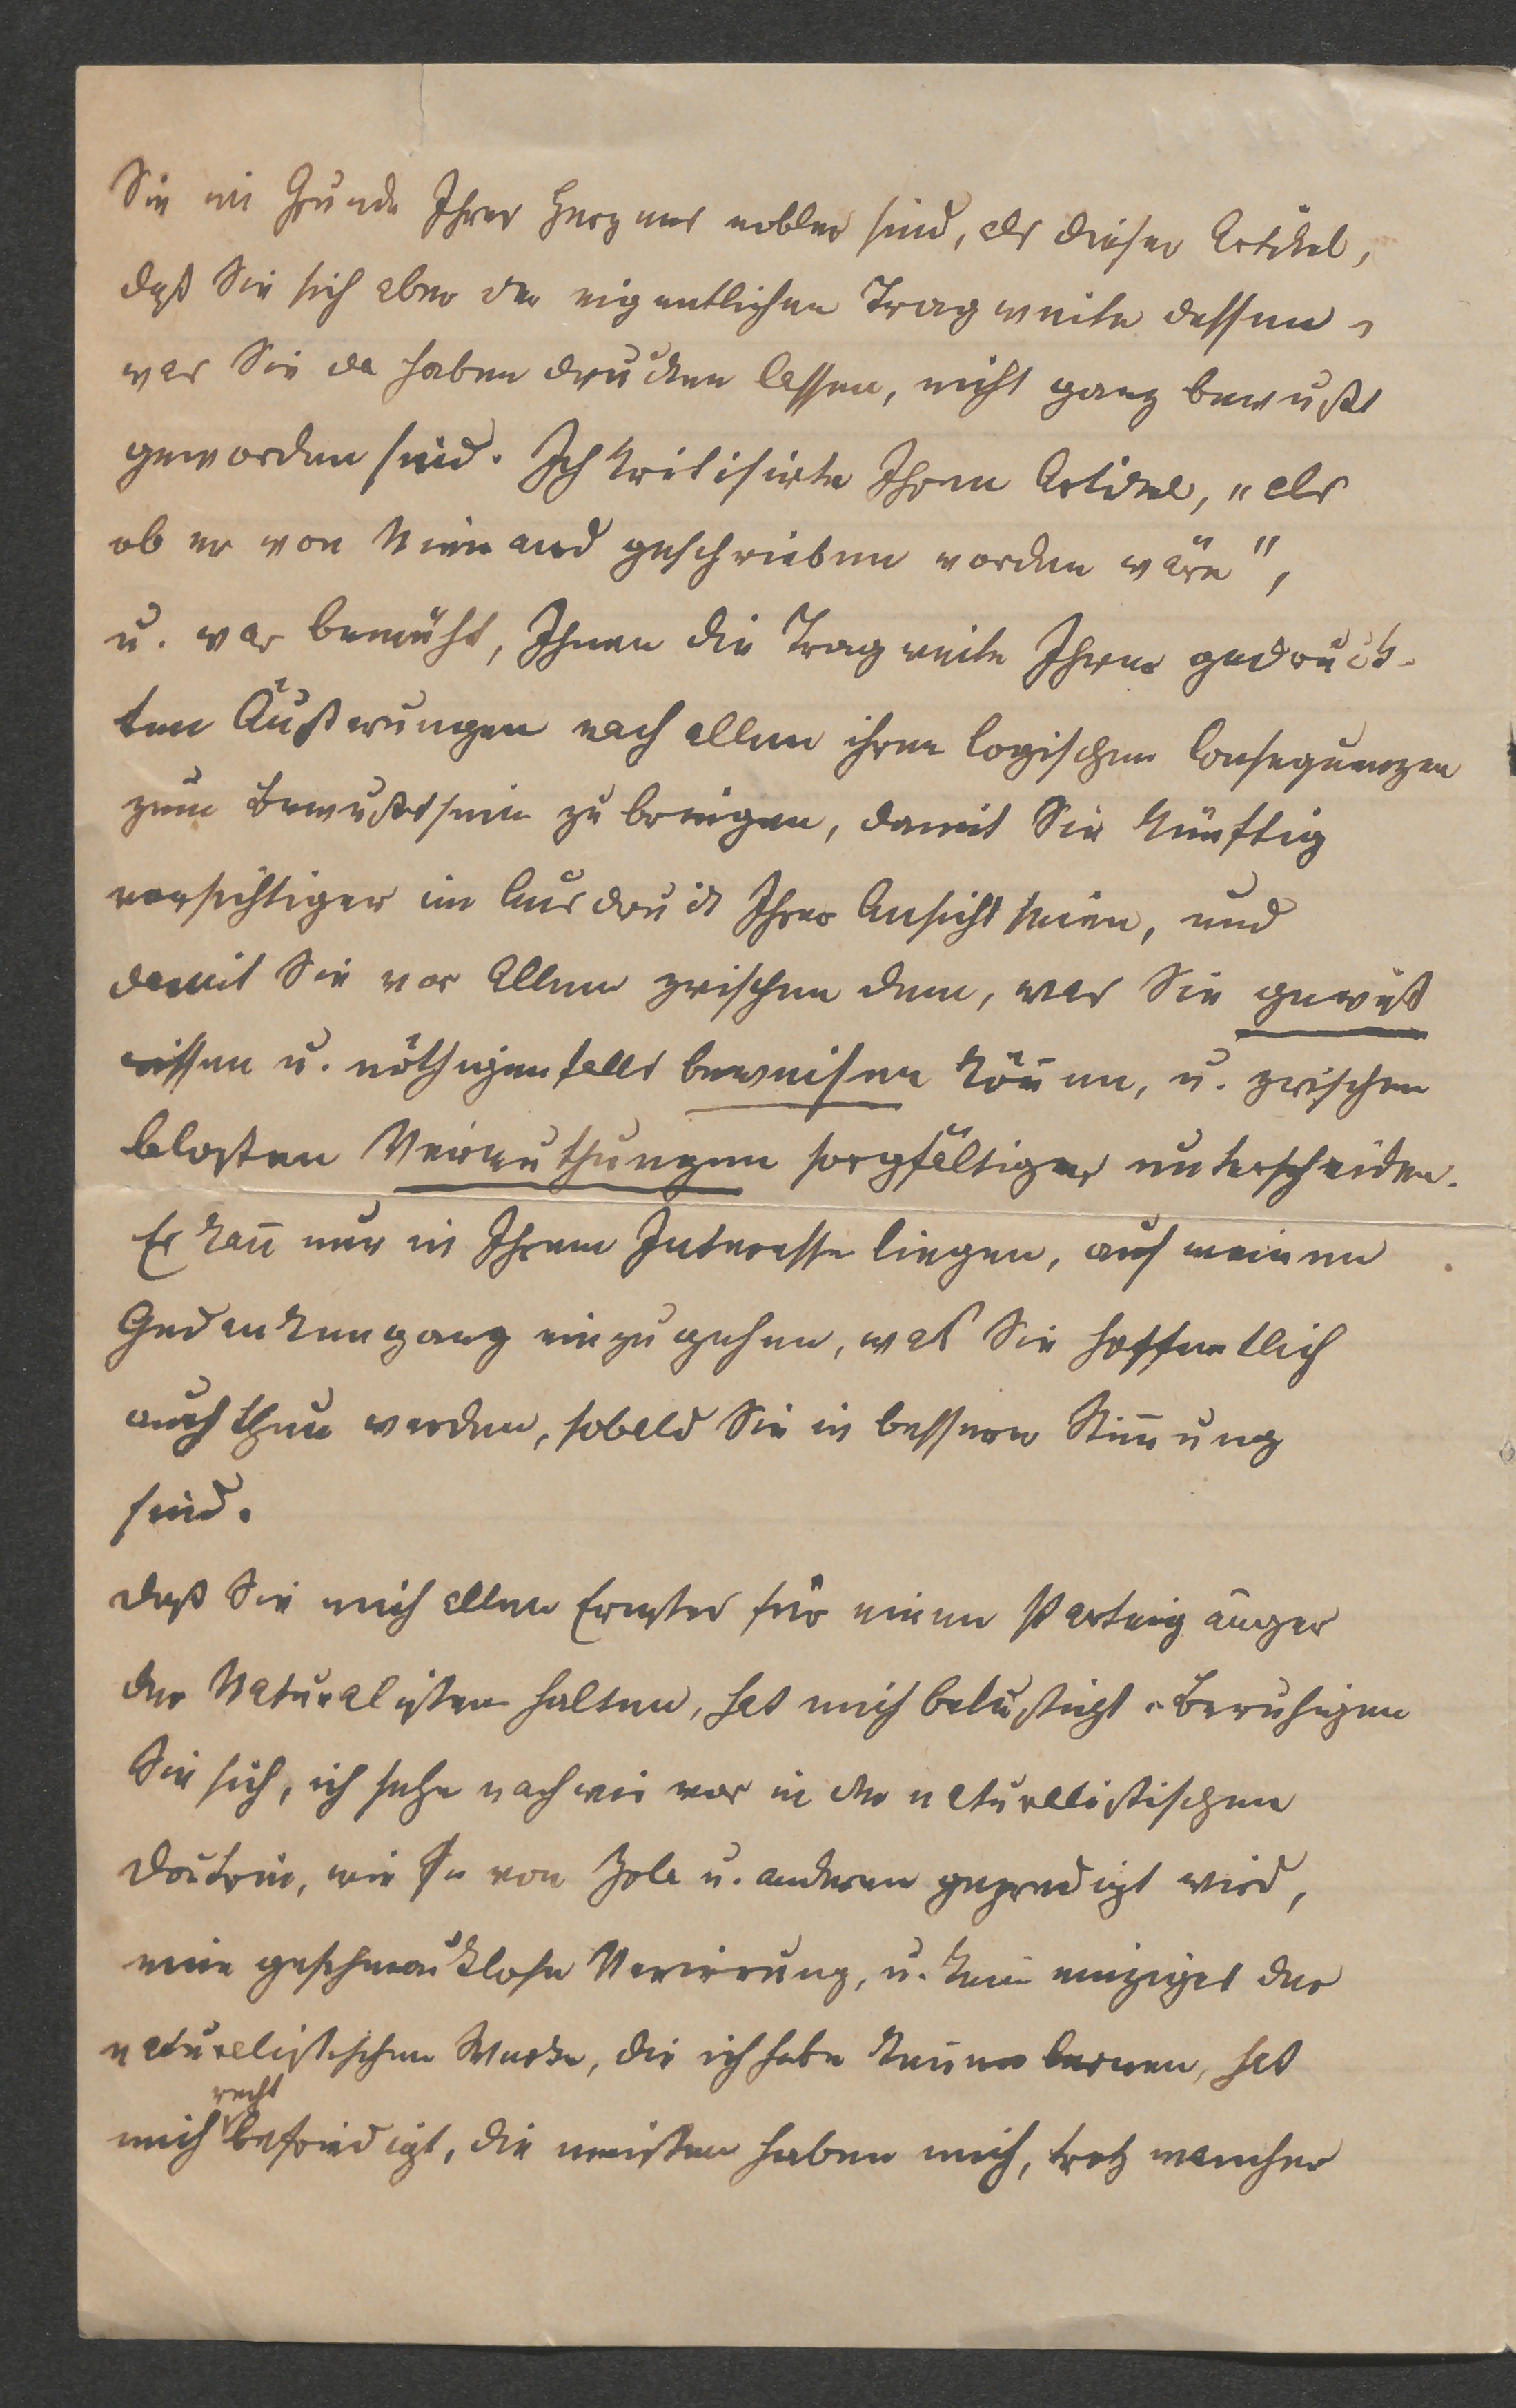 Sie im Grunde Ihres Herzens nobler sind, als dieser Artikel,
daß Sie sich aber der eigentlichen Tragweite dessen,
was Sie da haben drucken lassen, nicht ganz bewußt
geworden sind. Ich kritisirte Ihren Artikel, „als
ob er von Niemand geschrieben worden wäre",
u. war bemüht, Ihnen die Tragweite Ihrer gedruck-
ten Äußerungen nach allen ihren logischen Consequenzen
zum Bewußtsein zu bringen, damit Sie künftig
vorsichtiger im Ausdruck Ihrer Ansicht seien, und
damit Sie vor Allem zwischen dem, was Sie gewiß
wissen u. nöthigenfalls beweisen kön̄en, u. zwischen
bloßen Vermuthungen sorgfältiger unterscheiden.
Es kan̄ nur in Ihrem Interesse liegen, auf meinen
Gedankengang einzugehen, was Sie hoffentlich
auch thun werden, sobald Sie in bessern Stim̄ung
sind.
Daß Sie mich allen Ernstes für einen Parteigänger
der Naturalisten halten, hat mich belustigt. Beruhigen
Sie sich, ich sehe nach wie vor in der naturalistischen
Doctrin, wie sie von Zola u. anderen gepredigt wird,
eine geschmacklose Verirrung, u. kein einziges der
naturalistischen Werke, die ich habe ken̄en lernen, hat
mich recht befriedigt, die meisten haben mich, trotz mancher